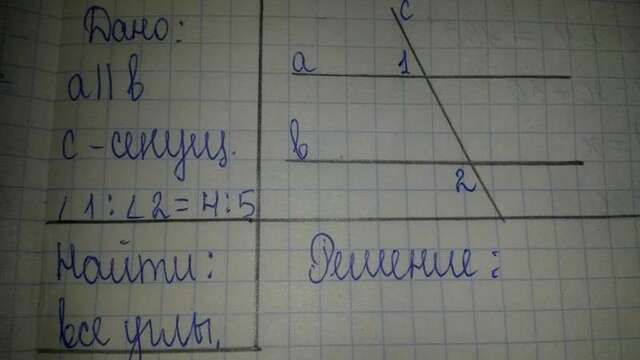 Дано:
a || b
c - секущ.
∠1 : ∠2 = 4:5
Найти:
все углы.
c
a
1
b
2
Решение: